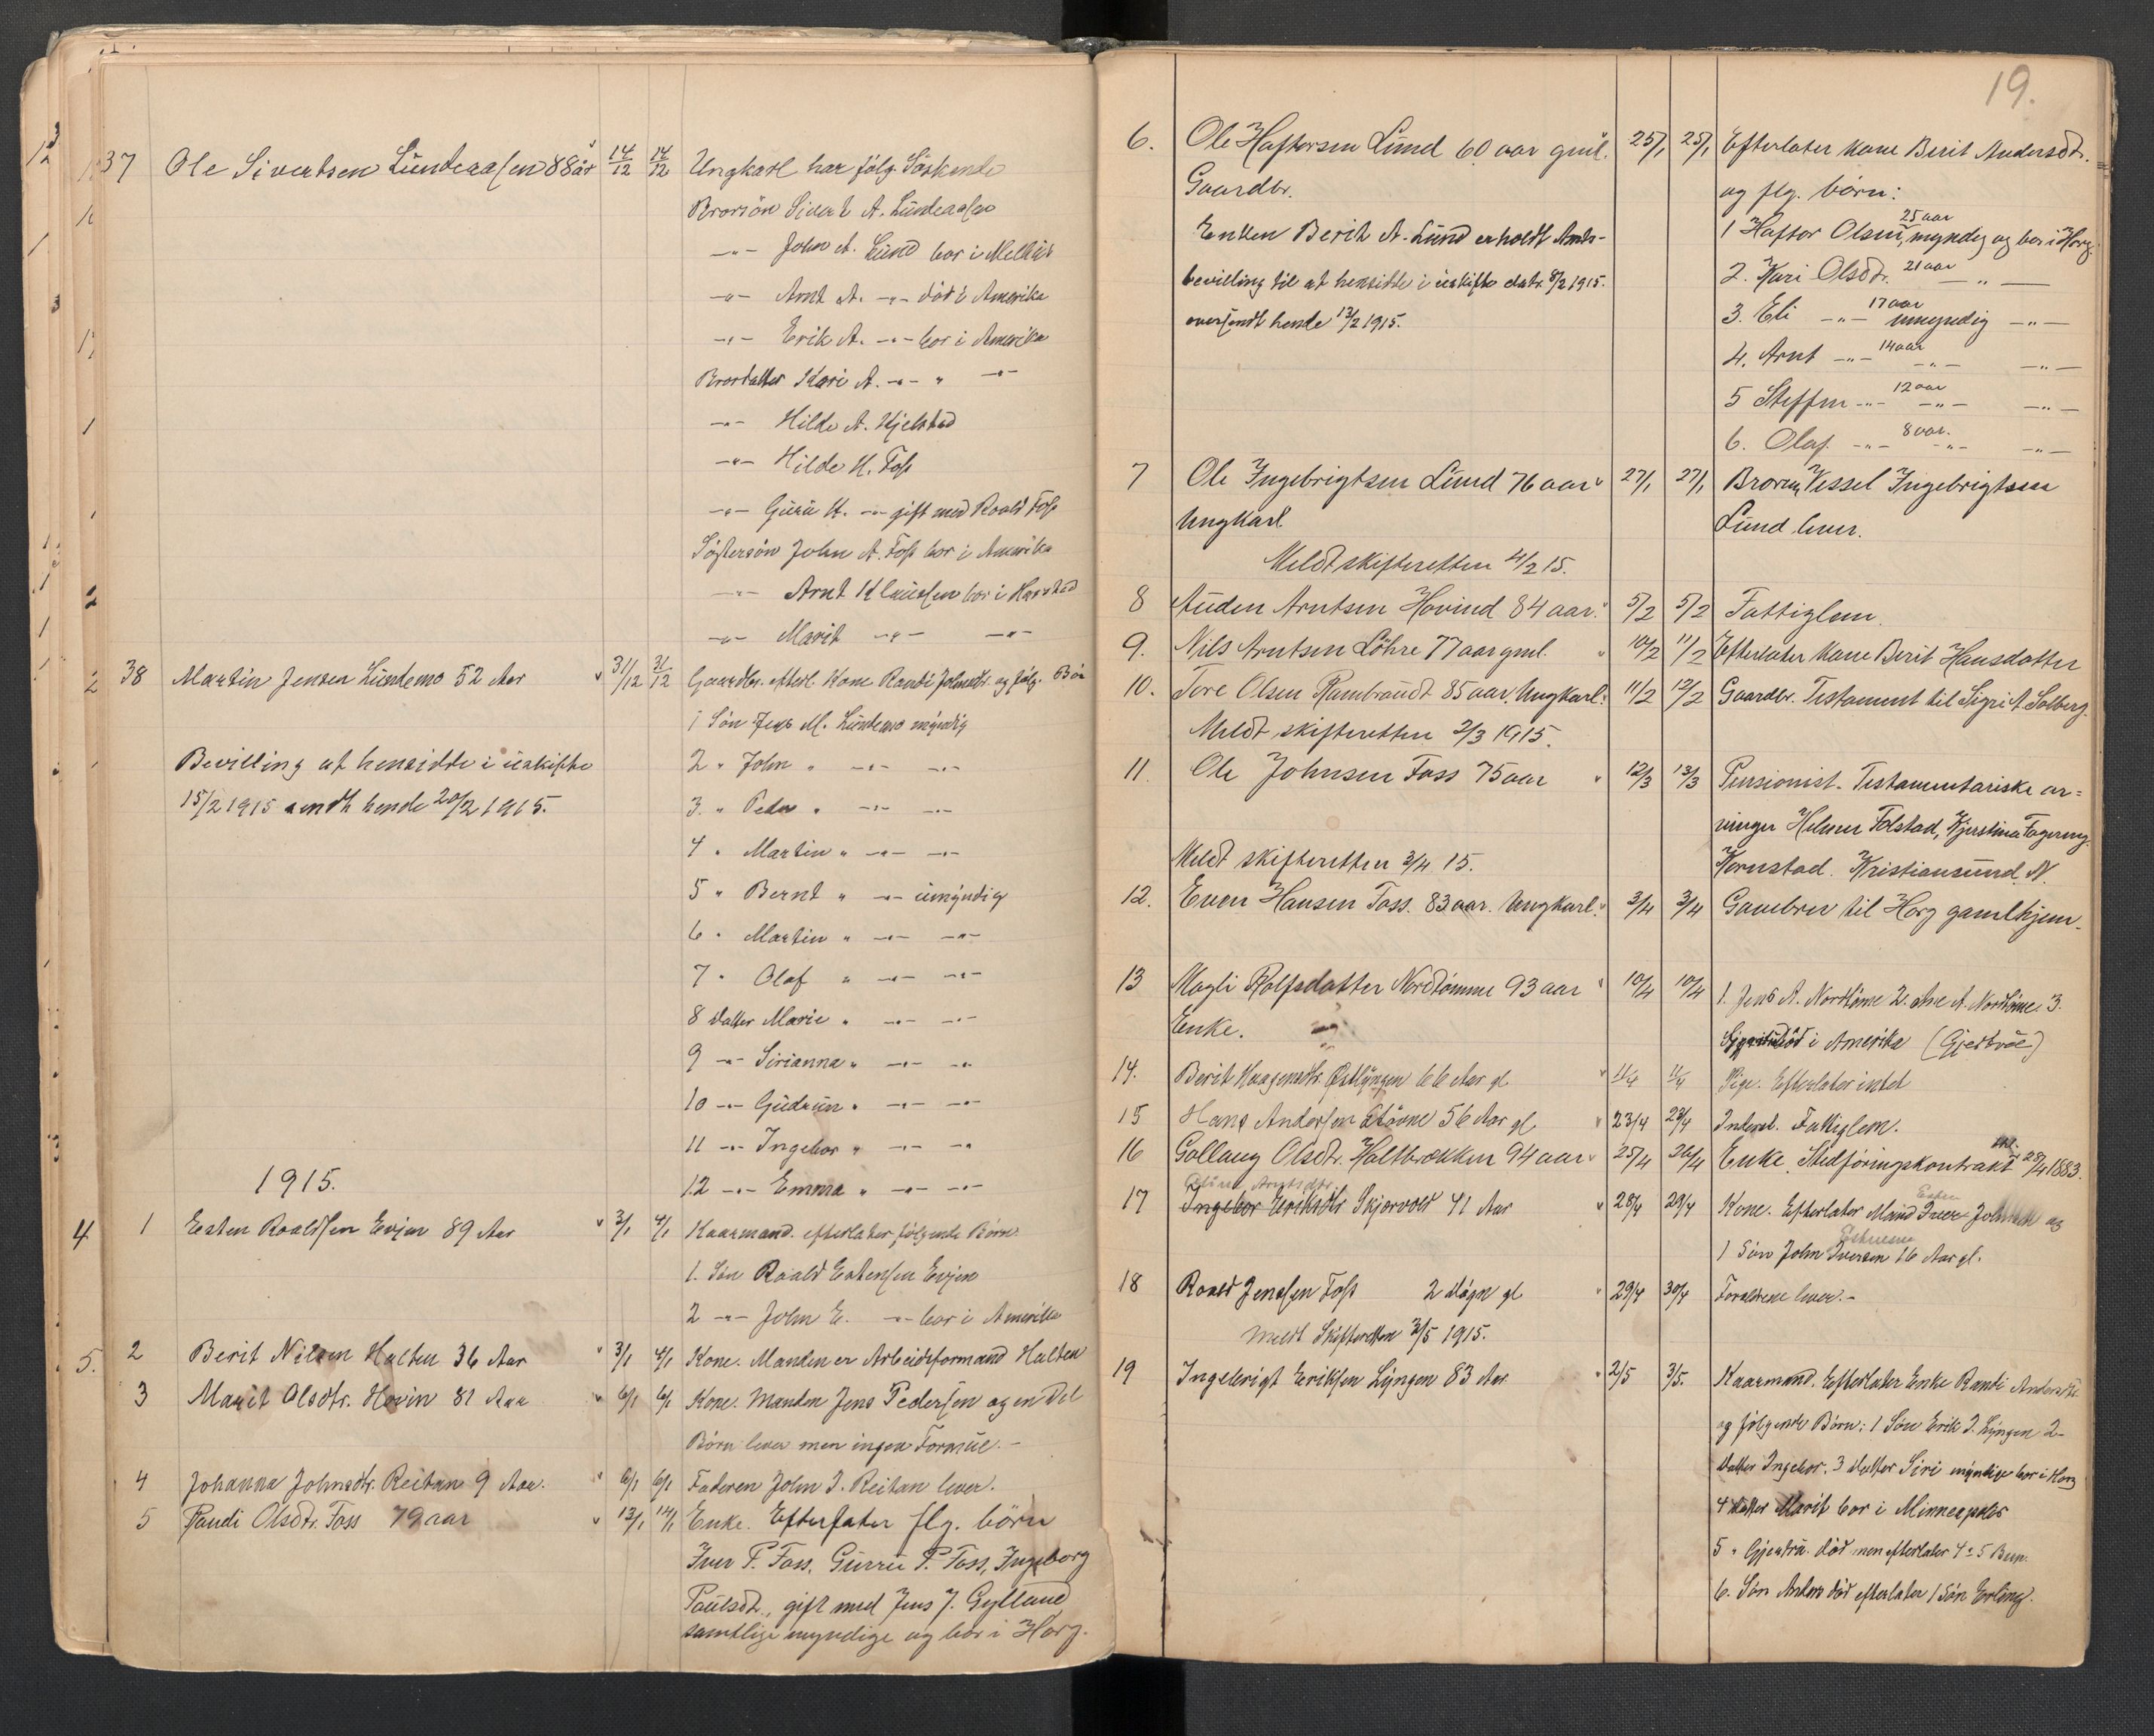 37 Ole Sivertsen Lundeaasen 88 år 14/12 14/12 Ungkarl har følg. Söskende
Brorsön Sivert A. Lundeaasen
-"- John A. Lund bor i Melhus
-"- Arnt A. -"- död i Amerika
-"- Erik A. -"- bor i Amerika
Brordatter Kari A. -"- " -"-
-"- Hilde A. Hjelstad
-"- Hilde K. Foss
-"- Guru K. -"- gift med Roald Foss
Söstersön John A. Foss bor i Amerika
-"- Arnt Klaussen bor i Harstad
-"- Marit -"- -"-
38 Martin Jensen Lundemo 52 Aar 31/12 31/12 Gaardbr. efterl. Kone Randi Johnsdtr. og følg. Bör
1 Sön Jens M. Lundemo myndig
Bevilling at hensidde i uskifte 2 " John " -"- -"-
15/2 1915 sendt hende 20/2 1915. 3. " Peder " -"- -"-
4 " Martin " -"- -"-
5 " Bernt " -"- umyndig
6 " Martin " -"- -"-
7 " Olaf " -"- -"-
8 Datter Marie " -"- -"-
9 -"- Sirianna " -"- -"-
10 -"- Gudrun " -"- -"-
11 -"- Ingebor " -"- -"-
1915.
12 -"- Emma " -"- -"-
4 1 Esten Roaldsen Evjen 89 Aar 3/1 4/1 Kaarmand. efterlater følgende Börn
1. Sön Roald Estensen Evjen
2 -"- John E. -"- bor i Amerika
5. 2 Berit Nilsen Halten 36 Aar 3/1 4/1 Kone. Manden er Arbeidsformand Halten
3 Marit Olsdtr. Hovin 81 Aar 6/1 6/1 Kone. Manden Jens Pedersen og en Del
Börn lever men ingen Formue.-
4 Johanna Johnsdtr. Reitan 9 Aar. 6/1 6/1 Faderen John J. Reitan lever.
5 Randi Olsdtr. Foss 79 aar 13/1 14/1 Enke. Efterlater flg. börn
Iver P. Foss, Gurru P. Foss, Ingeborg
Paulsdt., gift med Jens J. Gylland
samtlige myndige og bor i Horg.
19.
6. Ole Haftorsen Lund 60 aar gml. 25/1 25/1 Efterlater kone Berit Andersdtr.
Gaardbr. og flg. börn:
Enken Berit A. Lund erholdt Amts- 1 Haftor Olsen, 25 aar myndig og bor i Horg.
bevilling til at hensidde i uskifte datr. 8/2 1915. 2. Kari Olsdtr. 21 aar -"-
oversendt hende 13/2 1915. 3. Eli -"- 17 aar umyndig -"-
4. Arnt -"- 14 aar -"- -"-
5 Steffen -"- 12 aar -"- -"-
6. Olaf. -"- 8 aar. -"- -"-
7 Ole Ingebrigtsen Lund 76 aar 27/1 27/1 Broren Vessel Ingebrigtsen
Ungkarl Lund lever.
Meldt skifteretten 4/2 15.
8 Auden Arntsen Hovind 84 aar. 5/2 5/2 Fattiglem.
9. Nils Arntsen Löhre 77 aar gml. 10/2 11/2 Efterlater kone Berit Hansdatter
10. Tore Olsen Rambraudt 85 aar. Ungkarl. 11/2 12/2 Gaardbr. Testament til Sigrit Solberg.
Meldt skifteretten 2/3 1915.
11. Ole Johnsen Foss 75 aar 12/3 13/3 Pensionist. Testamentariske ar-
vinger Helmer Folstad, Kjerstina Fogereng.
Meldt skifteretten 3/4 15. Kornstad. Kristiansund. N.
12. Even Hansen Foss. 83 aar. Ungkarl. 3/4 3/4 Gavebrev til Horg gamlhjem.
13 Magli Rolfsdatter Nordtömme 93 aar 10/4 10/4 1. Jens A. Nordtöme 2. Ane A. Nordtöme. 3.
Enke. död i Amerika (Gjertrü)
14. Berit Haagensdtr. Østlyngen 66 Aar gl. 11/4 11/4 Pige. Efterlater intet
15 Hans Andersen Stövne 56 Aar gl 23/4 23/4 Inderst. Fattiglem.
16 Gollaug Olsdtr. Haltbrækken 94 aar 25/4 26/4 Enke. Stedföringskontrakt 28/4 1883.
17 Ingebor Eriksdtr. Skjervold 41 Aar 28/4 29/4 Kone. Efterlater Mand Iver Johnsen og
1 Sön John Iversen 16 Aar gl.
18 Roald Jenssen Foss 2 Døgn gl 29/4 30/4 Foraldrene lever.-
Meldt Skifteretten 3/5 1915.
19 Ingebrigt Eriksen Lyngen 83 Aar. 2/5 3/5. Kaarmand. Efterlater Enke Randi Andersdtr.
og følgende Börn: 1 Sön Erik I. Lyngen 2-
Datter Ingebor. 3 Datter Siri myndige bor i Horg
4 Datter Marit bor i Minneapolis
5 " Gjertru. död men efterlater 4 à 5 Barn.
6. Sön Anders död efterlater 1 Sön Erling.